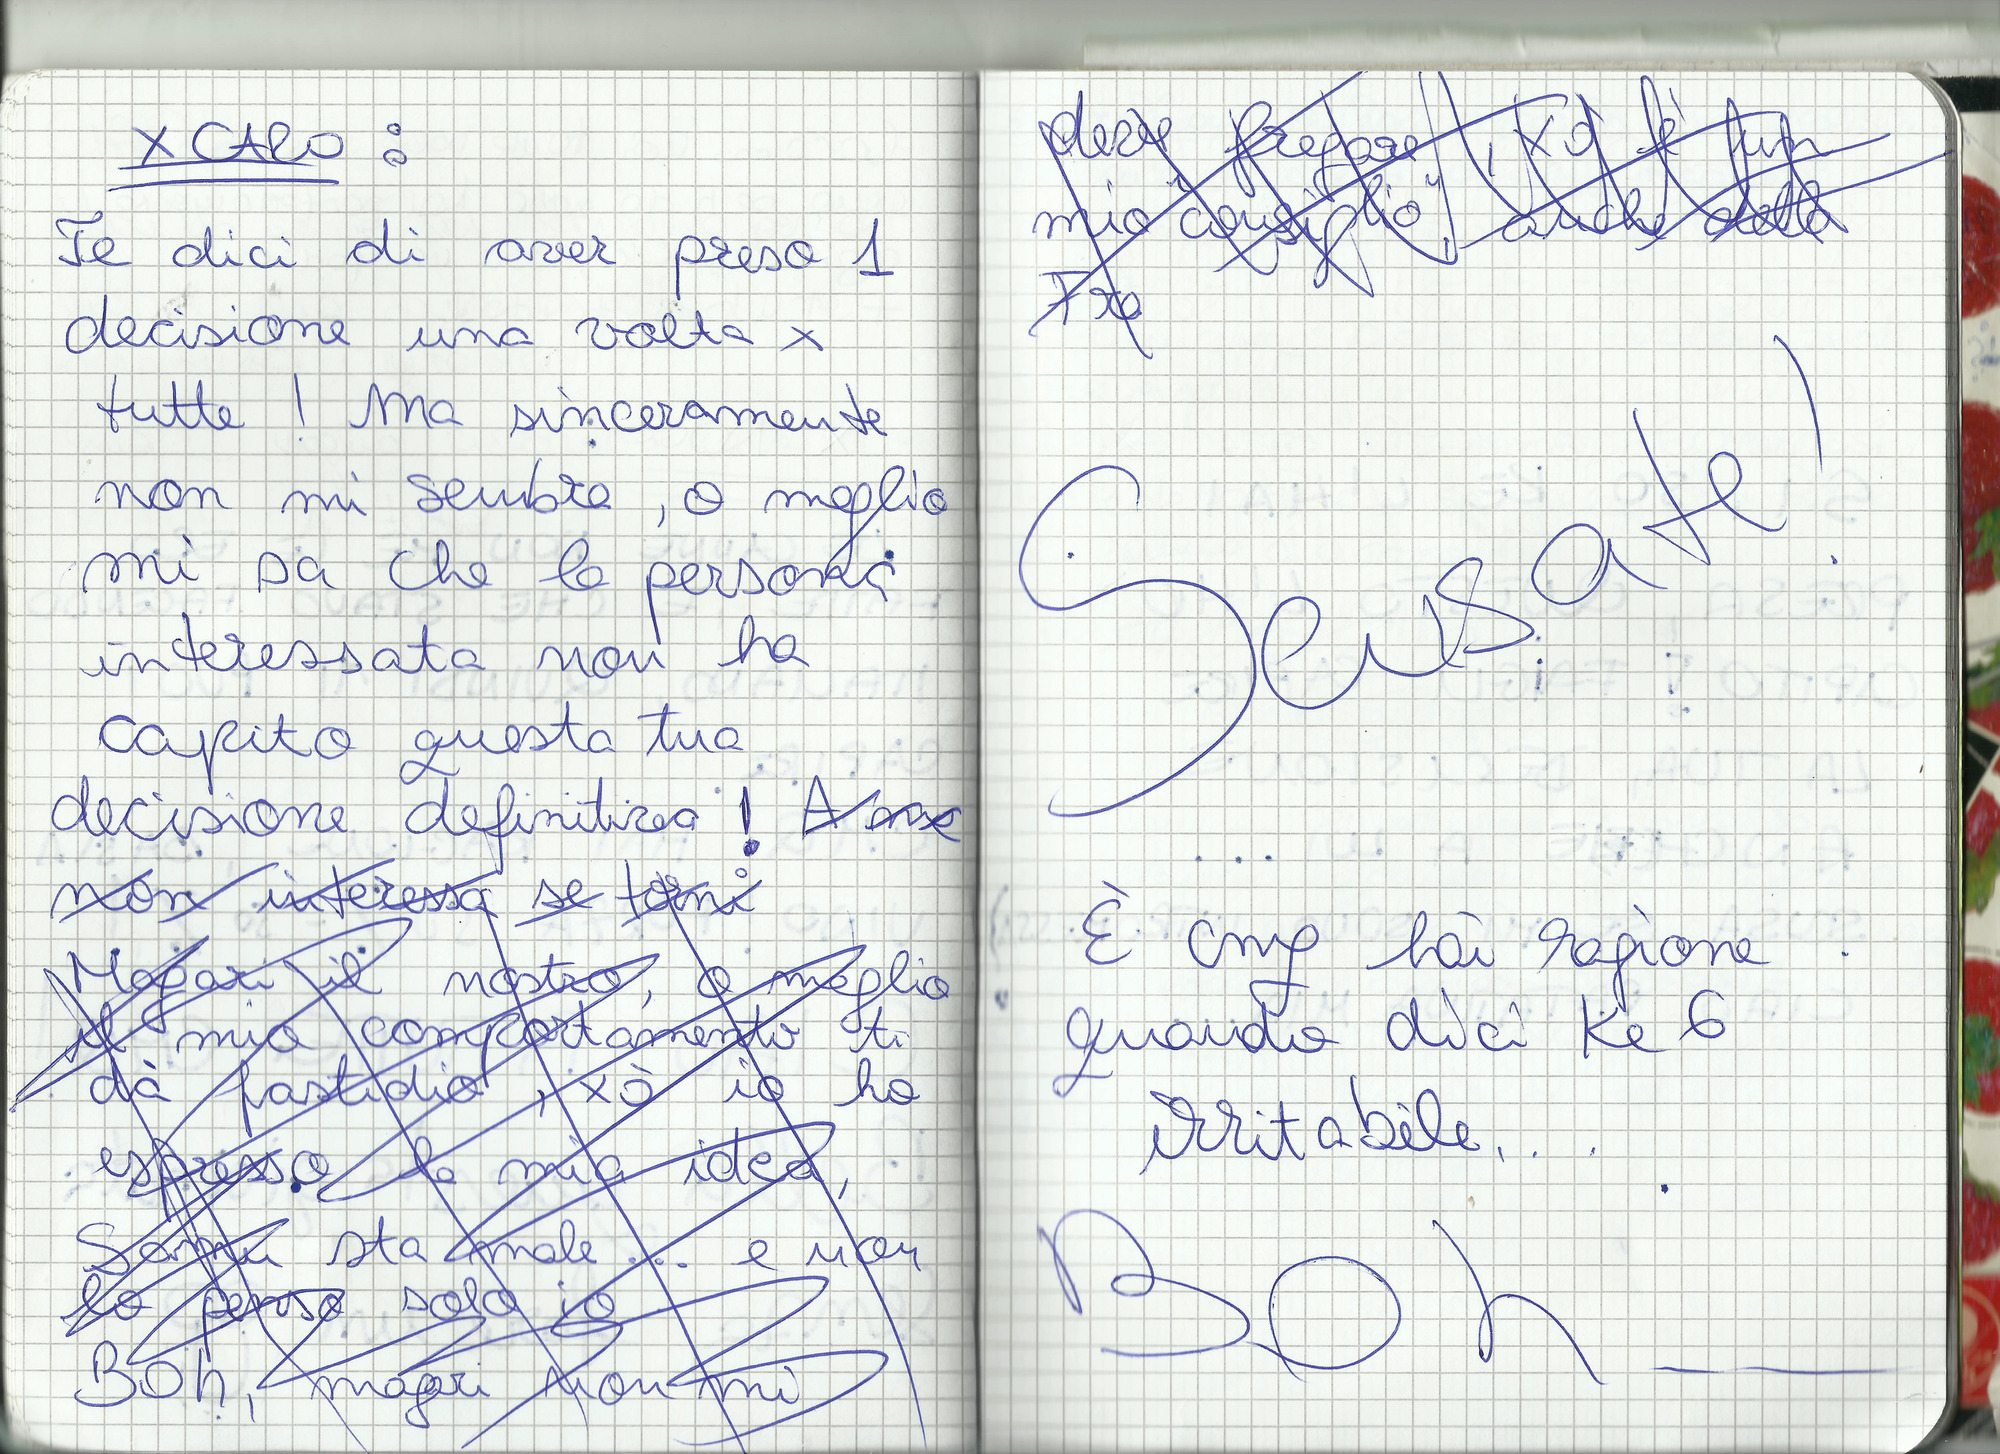 X CARO :
Te dici di aver preso 1
decisione una volta x
tutte ! Ma sinceramente
non mi sembra, o meglio
mi sa che la persona
interessata non ha
capito questa tua
decisione definitiva ! A me
non interessa se torni
Magari il nostro, o meglio
il mio comportamento ti
dà fastidio, xò io ho
espresso la mia idea,
sta male ... e non
lo penso solo io
Boh, magari non mi
deve fregare, xò è un
mio "consiglio", anche della
Fra
Scusate!
È cmq hai ragione
quando dici Ke 6
irritabile....
Boh_